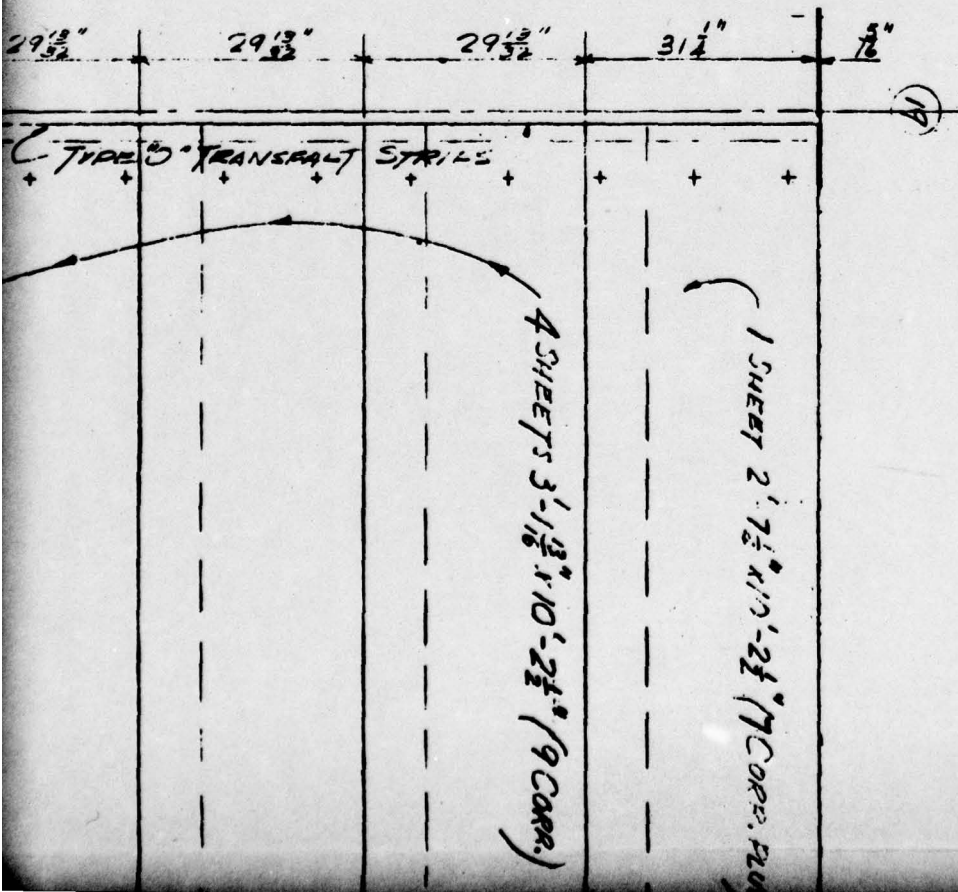 29 13/32" 29 13/32" 29 13/32" 31 1/4"
19
TYPE "D" TRANSPALT
4 SHEETS 3'-1 13/16" x 10'-2 1/2" (9 CORR.)
1 SHEET 2'-7 1/2" x 10'-2 1/2" (7 CORR. PLU